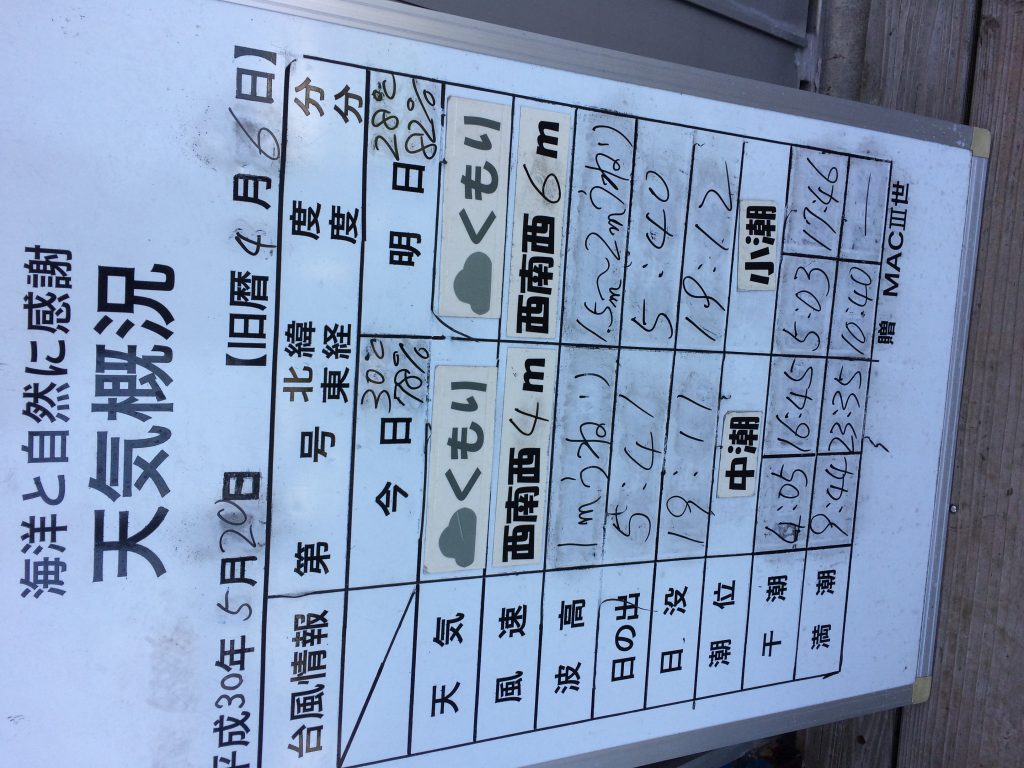 海洋と自然に感謝
天気概況
平成30年 5月20日 【旧暦 4月 6日】
台風情報 第 号 北緯 度 分
東経 度 分
今日 30℃ 78% 明日 28℃ 82%
天気 くもり くもり
風速 西南西 4 m 西南西 6 m
波高 1mうねり 1.5m~2mうねり
日の出 5:41 5:40
日没 19:11 19:12
潮位 中潮 小潮
干潮 4:05 16:45 5:03 17:46
満潮 9:44 23:35 10:40 —
贈 MACⅢ世